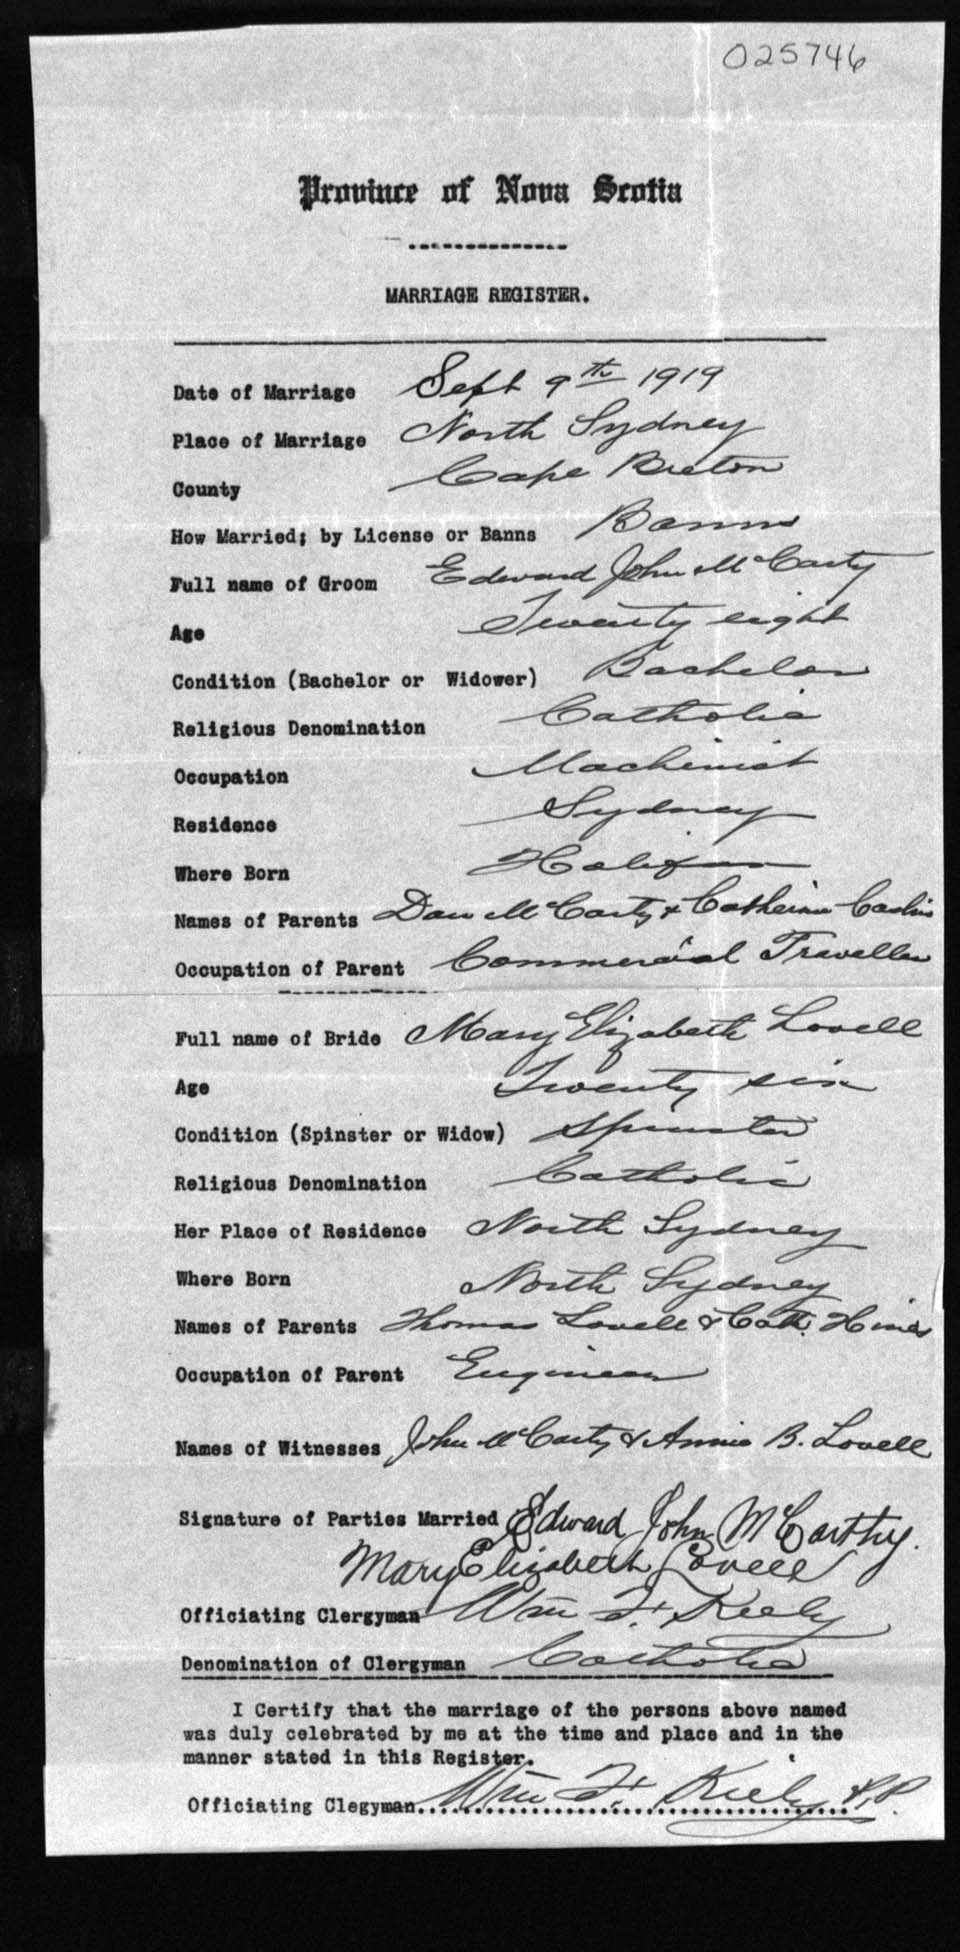 025746
Province of Nova Scotia
MARRIAGE REGISTER.
Date of Marriage Sept 9th 1919
Place of Marriage North Sydney
County Cape Breton
How Married; by License or Banns Banns
Full name of Groom Edward John McCarty
Age Twenty eight
Condition (Bachelor or Widower) Bachelor
Religious Denomination Catholic
Occupation Machinist
Residence Sydney
Where Born Halifax
Names of Parents Dan McCarty & Catherine
Occupation of Parent Commercial Traveller
Full name of Bride Mary Elizabeth Lovell
Age Twenty six
Condition (Spinster or Widow) Spinster
Religious Denomination Catholic
Her Place of Residence North Sydney
Where Born North Sydney
Names of Parents Thomas Lovell & Cath. Hines
Occupation of Parent Engineer
Names of Witnesses John McCarty & Annie B. Lovell
Signature of Parties Married Edward John McCarthy.
Mary Elizabeth Lovell
Officiating Clergyman Wm F. Kiely
Denomination of Clergyman Catholic
I Certify that the marriage of the persons above named
was duly celebrated by me at the time and place and in the
manner stated in this Register.
Officiating Clegyman Wm F. Kiely P.P.